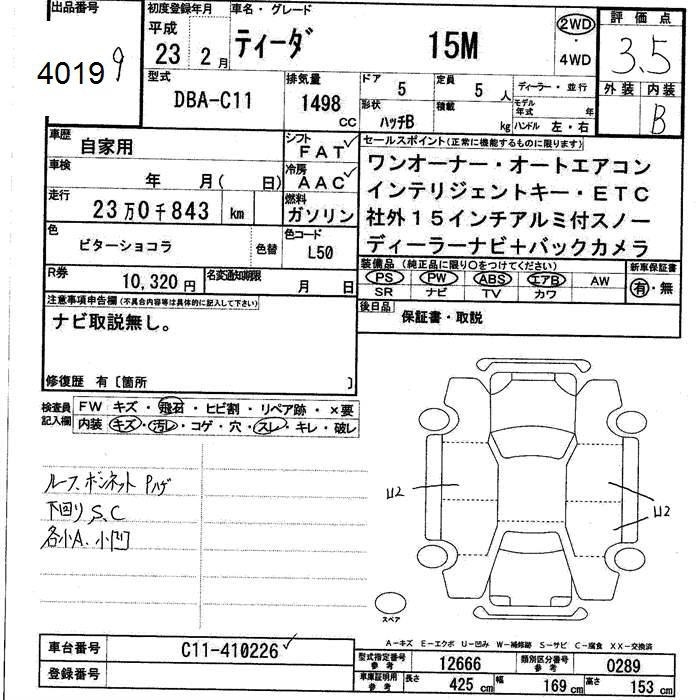 出品番号
40199
初度登録年月
平成
23 2月
車名・グレード
ティーダ 15M
2WD
・
4WD
評価点
3.5
外装 内装
B
型式
DBA-C11
排気量
1498
CC
ドア
5
形状
ハッチB
定員
5人
積載
kg
ディーラー・並行
モデル
年式 年
ハンドル 左・右
車歴
自家用
シフト
FAT
車検
年 月( 日)
冷房
AAC
走行
23万0千843 km
燃料
ガソリン
色
ビターショコラ
色替
色コード
L50
R券
10,320円
名変通知期限
月 日
セールスポイント(正常に機能するものに限ります)
ワンオーナー・オートエアコン
インテリジェントキー・ETC
社外15インチアルミ付スノー
ディーラーナビ+バックカメラ
装備品(純正品に限り○をつけてください)
PS PW ABS エアB AW
SR ナビ TV カワ
新車保証書
有・無
後日品
保証書・取説
注意事項申告欄(不具合内容等は具体的に記入して下さい)
ナビ取説無し。
修復歴 有〔箇所 〕
検査員
記入欄
FW キズ・飛石・ヒビ割・リペア跡・×要
内装 キズ・汚レ・コゲ・穴・スレ・キレ・破レ
ルーフ、ボンネット Pハゲ
下回り S、C
各小A、小凹
U2
U2
U2
スペア
A-キズ E-エクボ U-凹み W-補修跡 S-サビ C-腐食 XX-交換済
車台番号
C11-410226
登録番号
型式指定番号
参考
12666
類別区分番号
参考
0289
車庫証明用
参考
長さ 425 cm
幅 169 cm
高さ 153 cm